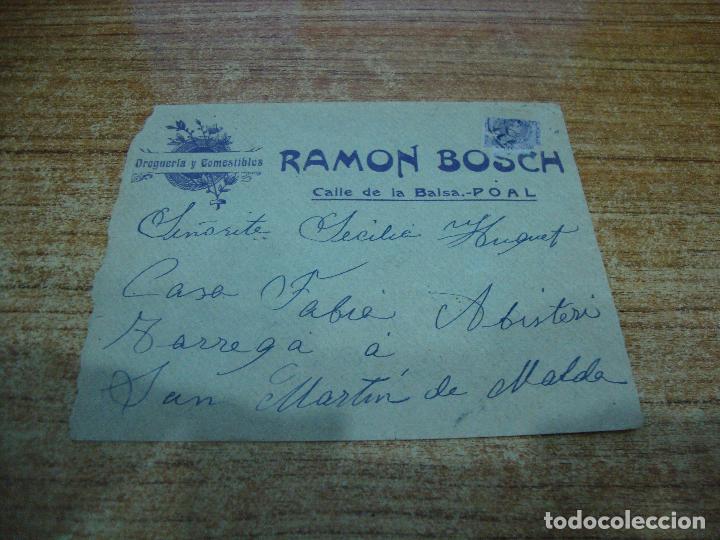 Droguería y Comestibles
RAMON BOSCH
Calle de la Balsa.-POAL
Señorite Secilia Huguet
Casa Fabia Abisteri
Tarrega á
San Martín de Malda
todocoleccion
todocoleccion.net